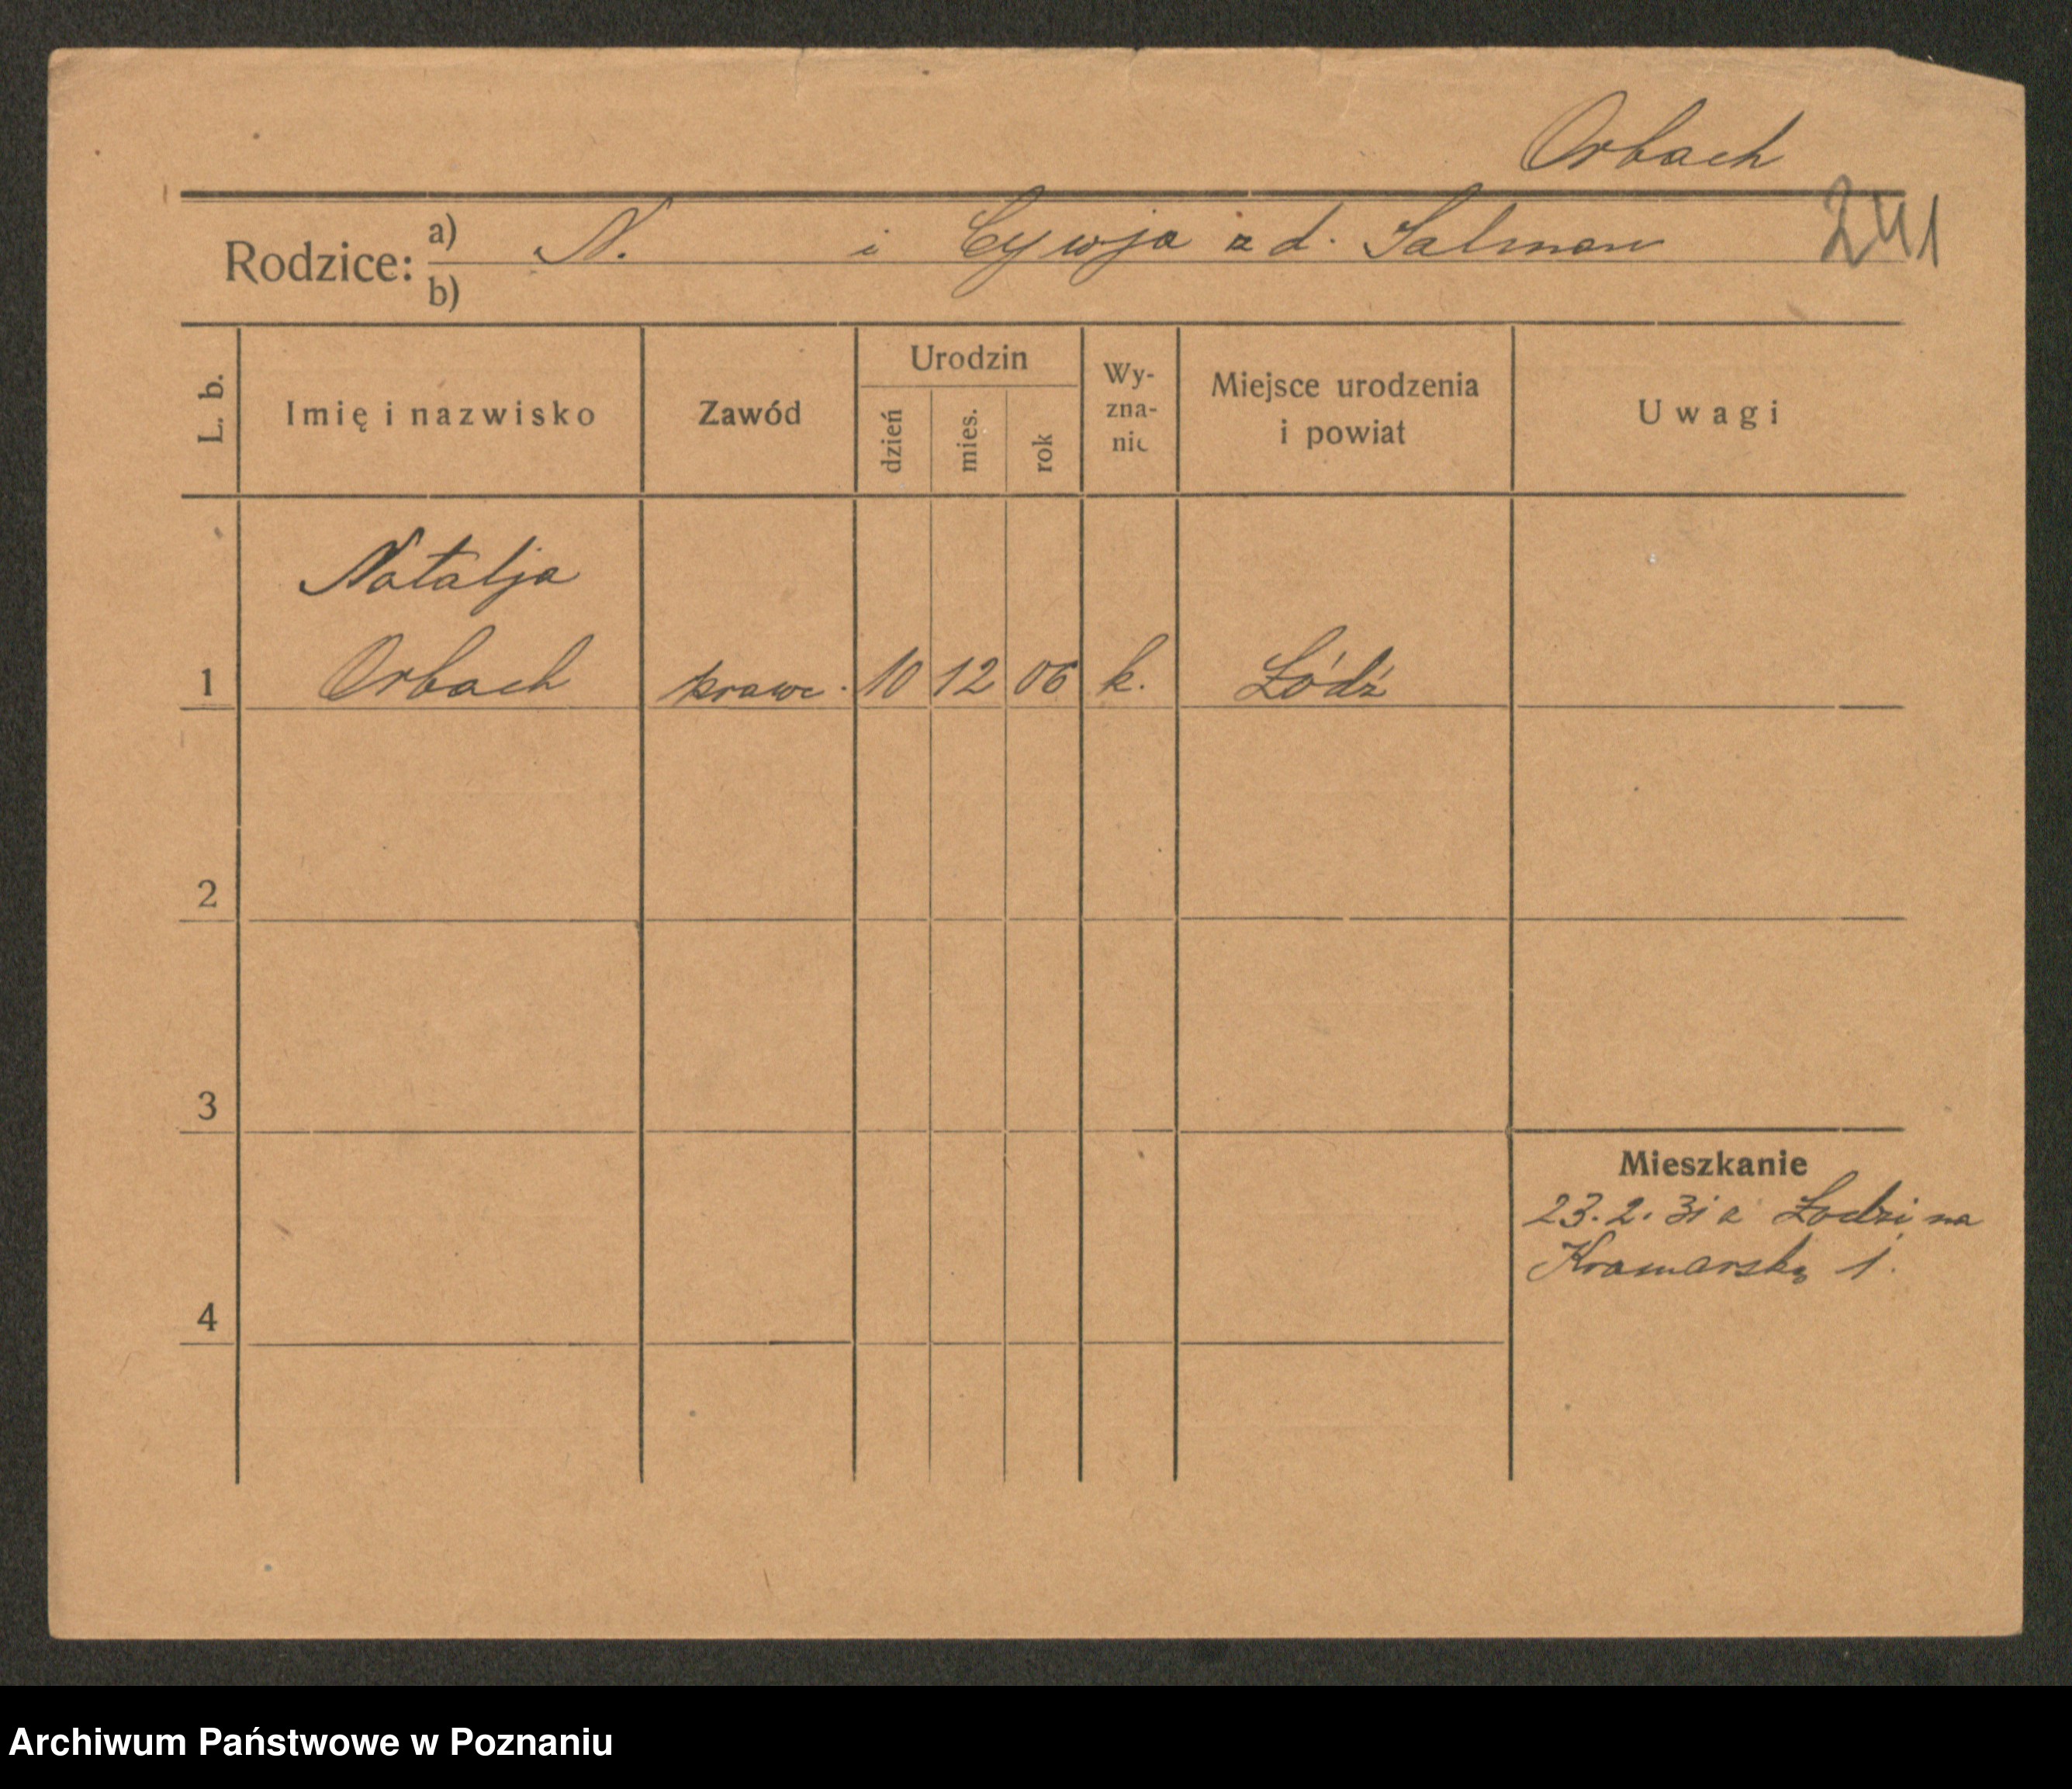 Orbach
241
Rodzice: a) N. i Cywja z d. Salman
b)
L. b.
Imię i nazwisko
Zawód
Urodzin
dzień
mies.
rok
Wy-
zna-
nie
Miejsce urodzenia
i powiat
Uwagi
Natalja
1 Orbach krawc. 10 12 06 k. Łódź
2
3
Mieszkanie
23.2.31 z Łodzi na
Kramarską 1.
4
Archiwum Państwowe w Poznaniu